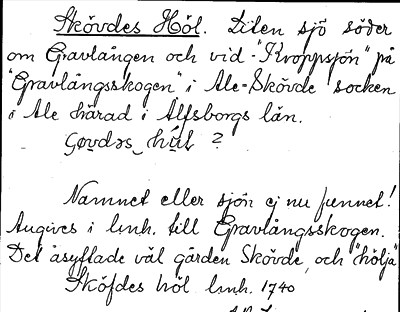 Skövdes Höl. Liten sjö söder
om Gravlången och vid "Kroppsjön" på
"Gravlångsskogen" i Ale-Skövde socken
i Ale härad i Älfsborgs län.
hu̇l ?
Namnet eller sjön ej nu funnet!
Angives i lmh. till Gravlångsskogen.
Det åsyftade väl gården Skövde och "hölja"
Sköfdes höl lmh. 1740